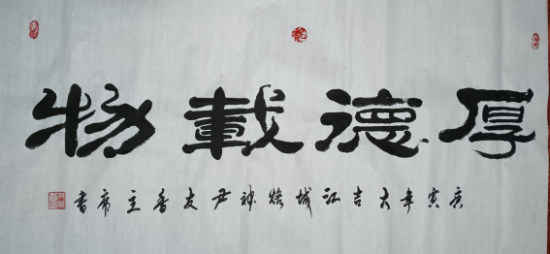 厚德載物
庚寅年大吉江城嫁神尹友香主席書